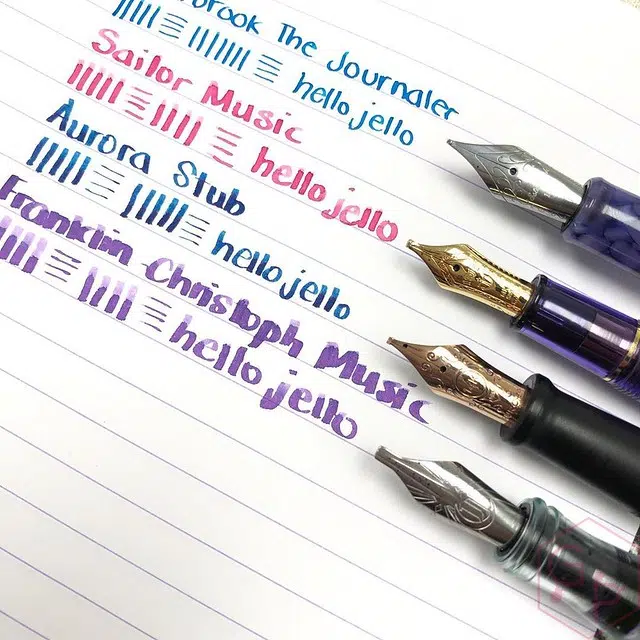 The Journaler
hello jello
Sailor Music
hello jello
Aurora Stub
hello jello
Franklin Christoph Music
hello jello